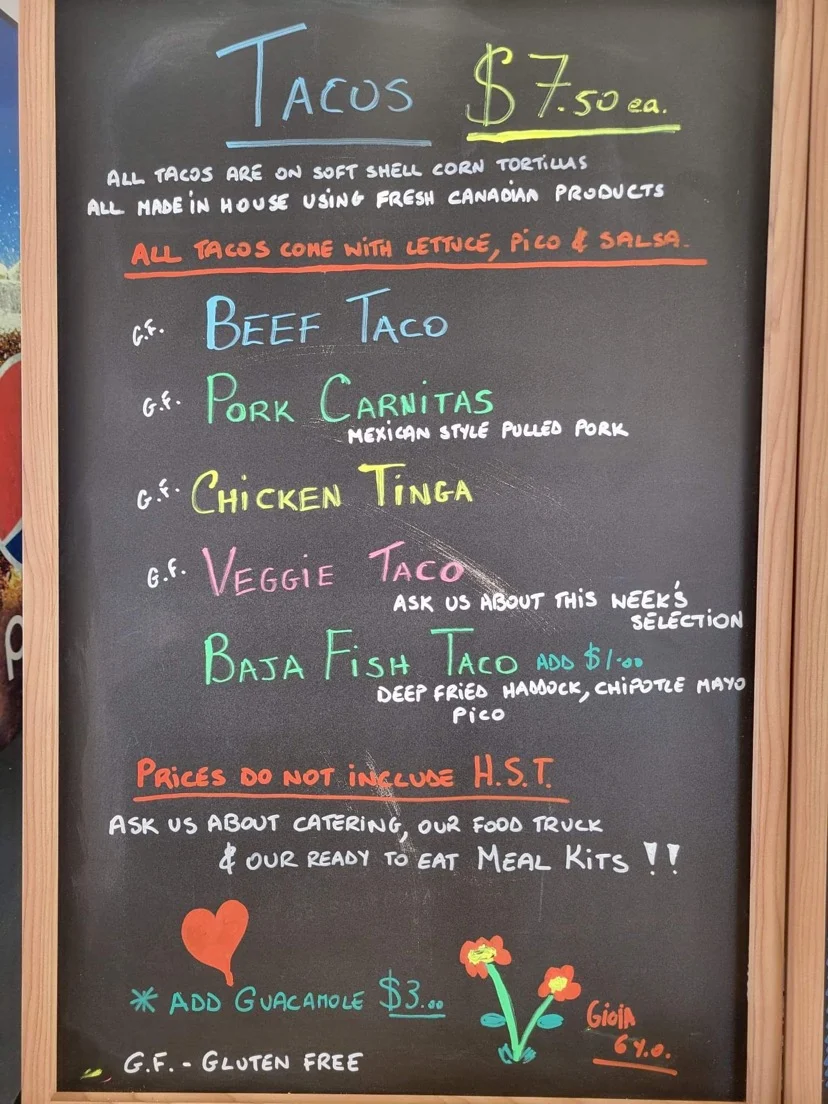 TACOS $7.50 ea.
ALL TACOS ARE ON SOFT SHELL CORN TORTILLAS
ALL MADE IN HOUSE USING FRESH CANADIAN PRODUCTS
ALL TACOS COME WITH LETTUCE, PICO & SALSA.
G.F. BEEF TACO
G.F. PORK CARNITAS
MEXICAN STYLE PULLED PORK
G.F. CHICKEN TINGA
G.F. VEGGIE TACO
ASK US ABOUT THIS WEEK'S
SELECTION
BAJA FISH TACO ADD $1.00
DEEP FRIED HADDOCK, CHIPOTLE MAYO
PICO
PRICES DO NOT INCLUDE H.S.T.
ASK US ABOUT CATERING, OUR FOOD TRUCK
& OUR READY TO EAT MEAL KITS !!
* ADD GUACAMOLE $3.00
GiOiA
6 Y.O.
G.F. - GLUTEN FREE